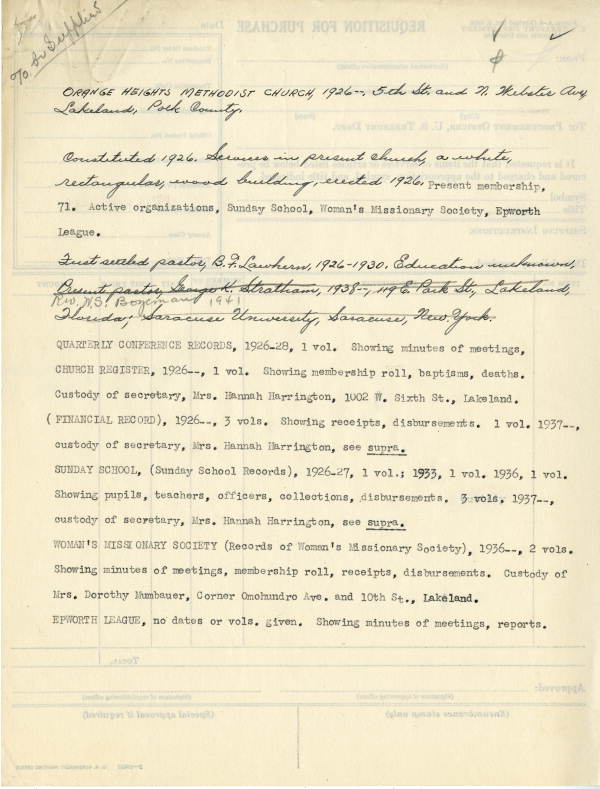 To Sv Supplies
ORANGE HEIGHTS METHODIST CHURCH, 1926--, 5th St. and N. Webster Ave,
Lakeland, Polk County.
Constituted 1926. Services in present church, a white,
rectangular, wood building, erected 1926. Present membership,
71. Active organizations, Sunday School, Woman's Missionary Society, Epworth
League.
First settled pastor, B. F. Lawhern, 1926-1930. Education unknown,
Present pastor, George K. Stratham, 1938--, 119 E. Park St., Lakeland,
Rev. W.S. Bozeman, 1941
Florida; Saracuse University, Saracuse, New York.
QUARTERLY CONFERENCE RECORDS, 1926-28, 1 vol. Showing minutes of meetings,
CHURCH REGISTER, 1926--, 1 vol. Showing membership roll, baptisms, deaths.
Custody of secretary, Mrs. Hannah Harrington, 1002 W. Sixth St., Lakeland.
(FINANCIAL RECORD), 1926--, 3 vols. Showing receipts, disbursements. 1 vol. 1937--,
custody of secretary, Mrs. Hannah Harrington, see supra.
SUNDAY SCHOOL, (Sunday School Records), 1926-27, 1 vol.; 1933, 1 vol. 1936, 1 vol.
Showing pupils, teachers, officers, collections, disbursements. 3 vols. 1937--,
custody of secretary, Mrs. Hannah Harrington, see supra.
WOMAN'S MISSIONARY SOCIETY (Records of Woman's Missionary Society), 1936--, 2 vols.
Showing minutes of meetings, membership roll, receipts, disbursements. Custody of
Mrs. Dorothy Mumbauer, Corner Omohundro Ave. and 10th St., Lakeland.
EPWORTH LEAGUE, no dates or vols. given. Showing minutes of meetings, reports.